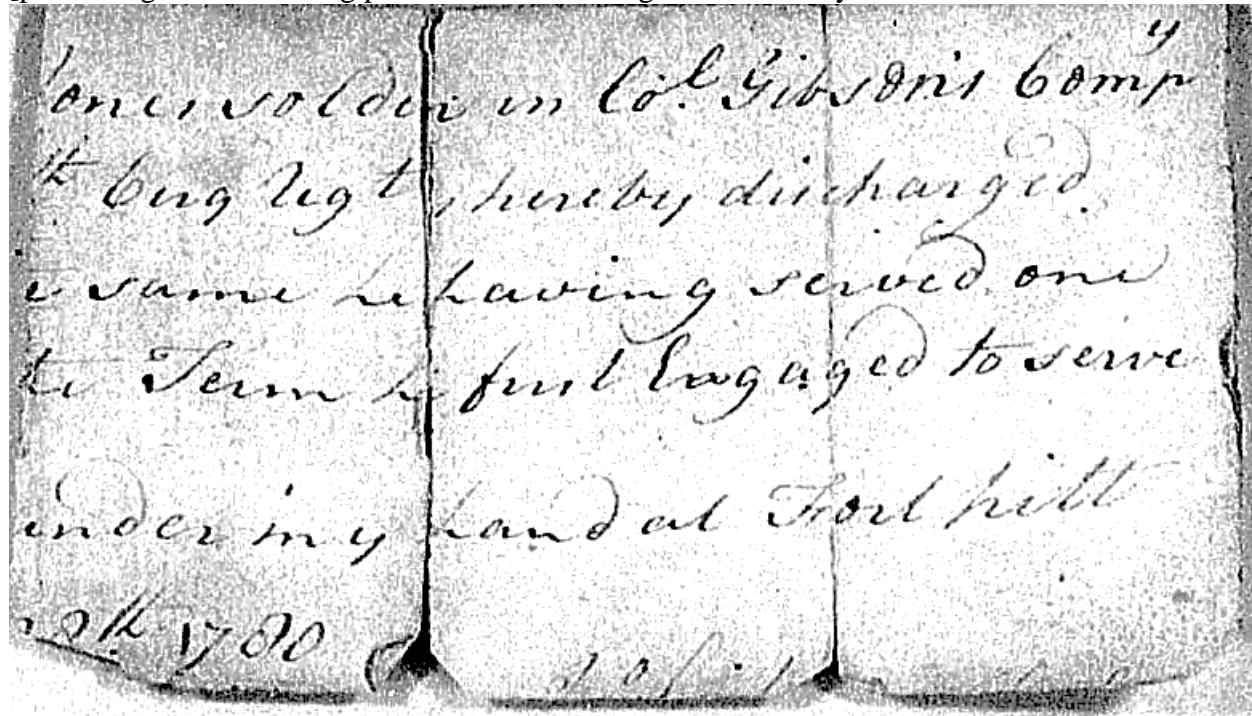 ones soldier in Col. Gibson's Compy
th Virg Regt, hereby discharged
e same he having served one
te Term he first Engaged to serve
under my hand at Fort pitt
8th 1780